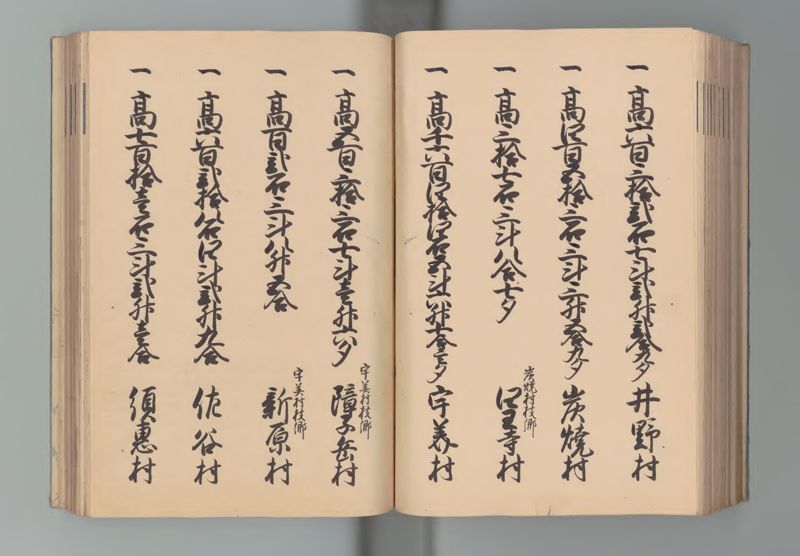 一 高六百三拾弐石七斗弐升弐合九夕 井野村
一 高四百五拾三石三斗三升五合九夕 炭焼村
一 高三拾七石三斗八合七夕 炭焼村枝郷 四王寺村
一 高千六百四拾四石五斗八升七合三夕 宇美村
一 高五百三拾三石七斗壱升六夕 宇美村枝郷 障子岳村
一 高百弐石三斗八升五合 宇美村枝郷 新原村
一 高六百弐拾八石四斗弐升九合 佐谷村
一 高七百拾壱石三斗弐升壱合 須惠村